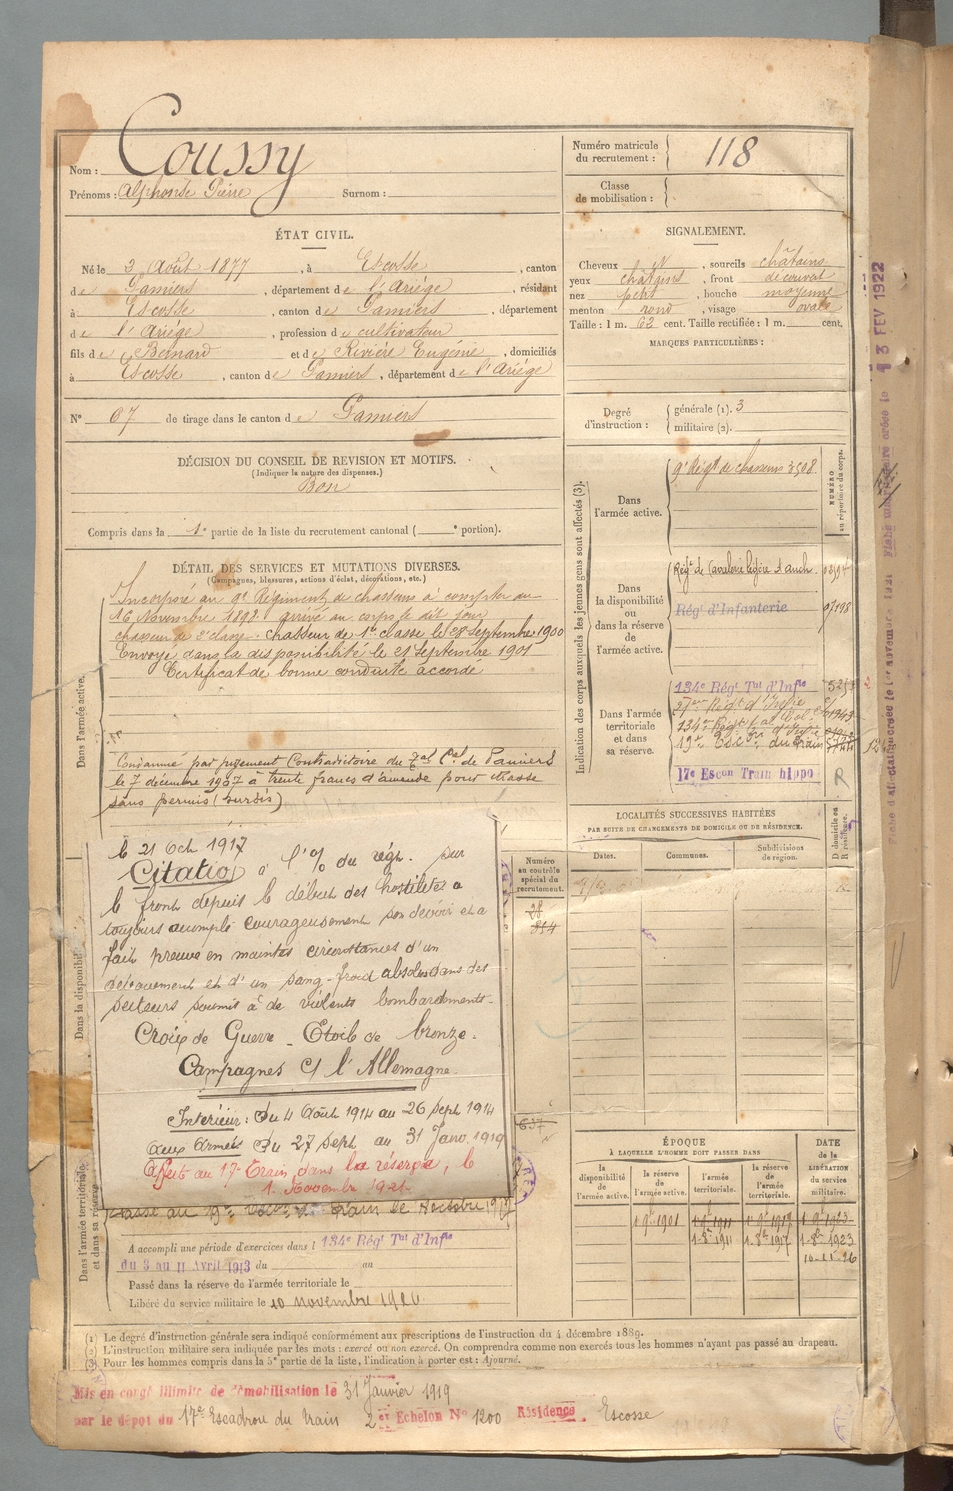 Nom : Coussy
Prénoms : Alphonse Pierre Surnom :
Numéro matricule du recrutement : 118
Classe de mobilisation :
ÉTAT CIVIL.
Né le 3 Août 1877, à Escosse, canton
de Pamiers, département de l'Ariège, résidant
à Escosse, canton de Pamiers, département
de l'Ariège, profession de cultivateur
fils de Bernard et de Rivière Eugénie, domiciliés
à Escosse, canton de Pamiers, département de l'Ariège
N° 67 de tirage dans le canton de Pamiers
SIGNALEMENT.
Cheveux N, sourcils châtains
yeux châtains, front découvert
nez petit, bouche moyenne
menton rond, visage ovale
Taille : 1 m. 62 cent. Taille rectifiée : 1 m. cent.
MARQUES PARTICULIÈRES :
Degré d'instruction : générale (1). 3
militaire (2).
DÉCISION DU CONSEIL DE REVISION ET MOTIFS.
(Indiquer la nature des dispenses.)
Bon
Compris dans la 1e partie de la liste du recrutement cantonal ( e portion).
DÉTAIL DES SERVICES ET MUTATIONS DIVERSES.
(Campagnes, blessures, actions d'éclat, décorations, etc.)
Dans l'armée active.
Incorporé au 9e Régiment de chasseurs à compter du
16 Novembre 1898 arrivé au corps le dit jour
chasseur de 2e classe. chasseur de 1re classe le 28 septembre 1900
Envoyé dans la disponibilité le 21 septembre 1901
Certificat de bonne conduite accordé
Condamné par jugement Contradictoire du Tal Cel de Pamiers
le 7 décembre 1907 à trente francs d'amende pour chasse
sans permis (sursis)
Dans la disponibilité
le 21 Oct 1917
Citation à l'% du régt. Sur
le front depuis le début des hostilités a
toujours accompli courageusement son devoir et a
fait preuve en maintes circonstances d'un
dévouement et d'un sang-froid absolus dans des
secteurs soumis à de violents bombardements.
Croix de Guerre - Etoile de bronze.
Campagnes c/ l'Allemagne.
Intérieur : Du 4 Août 1914 au 26 Sept 1914
aux Armées Du 27 Sept au 31 Janv. 1919
Affecté au 17e Train, dans la réserve, le
1. Novembre 1921
Dans l'armée territoriale et dans sa réserve
A accompli une période d'exercices dans l 134e Régt Tal d'Infie
du 3 au 11 Avril 1913 du au
Passé dans la réserve de l'armée territoriale le
Libéré du service militaire le 10 novembre 1926.
Indication des corps auxquels les jeunes gens sont affectés (3).
NUMÉRO au répertoire du corps.
Dans l'armée active. 9e Régt de chasseurs 3508
Dans la disponibilité ou dans la réserve de l'armée active. Régt de Cavalerie légère d'Auch.
Régt d'Infanterie
Dans l'armée territoriale et dans sa réserve.
134e Régt Tal d'Infie
19e Escon du train
17e Escon Train hippo R
Numéro au contrôle spécial du recrutement.
28
854
637
LOCALITÉS SUCCESSIVES HABITÉES
PAR SUITE DE CHANGEMENTS DE DOMICILE OU DE RÉSIDENCE.
Dates. Communes. Subdivisions de région. D domicile ou R résidence.
ÉPOQUE
À LAQUELLE L'HOMME DOIT PASSER DANS
DATE de la LIBÉRATION du service militaire.
la disponibilité de l'armée active. la réserve de l'armée active. l'armée territoriale. la réserve de l'armée territoriale.
(1) Le degré d'instruction générale sera indiqué conformément aux prescriptions de l'instruction du 4 décembre 1889.
(2) L'instruction militaire sera indiquée par les mots : exercé ou non exercé. On comprendra comme non exercés tous les hommes n'ayant pas passé au drapeau.
(3) Pour les hommes compris dans la 5e partie de la liste, l'indication à porter est : Ajourné.
Mis en congé illimité de démobilisation le 31 Janvier 1919
par le dépôt du 17e Escadron du train 2e Echelon N° 1200 Résidence Escosse
13 FEV 1922